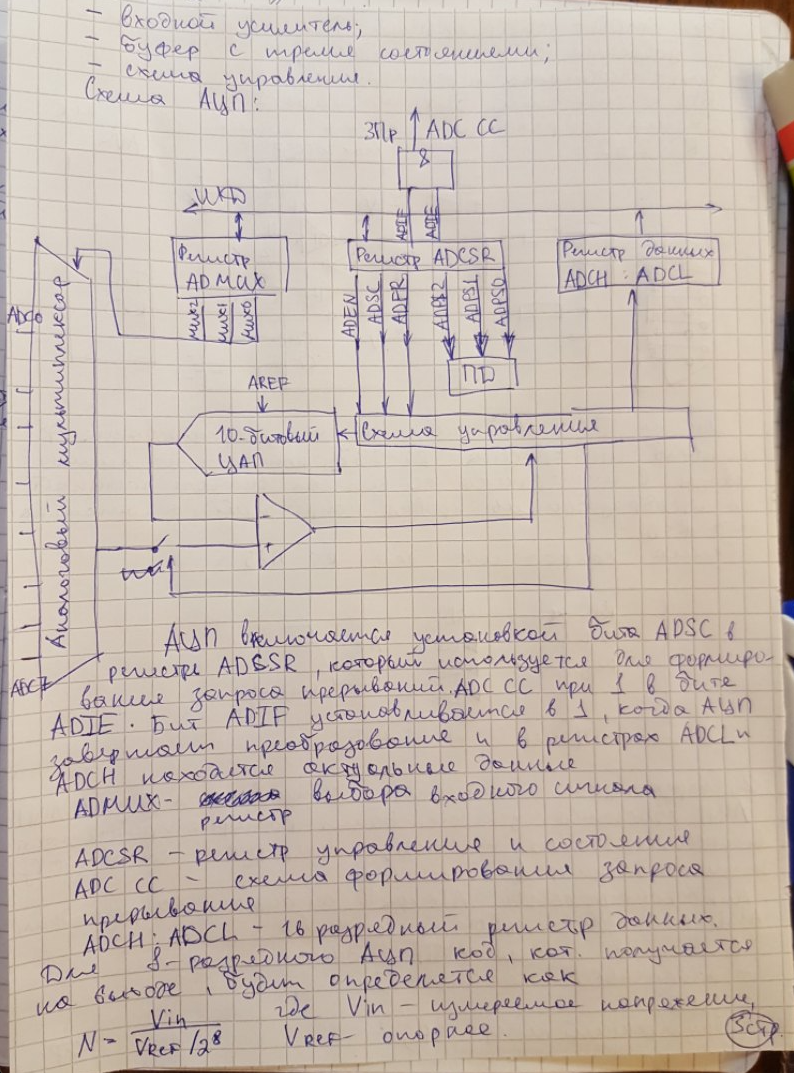 - входной усилитель;
- буфер с тремя состояниями;
- схема управления.
Схема АЦП:
ЗПр ADC CC
&
ШД
Регистр
ADMUX
MUX2
MUX1
MUX0
ADIF
ADIE
Регистр ADCSR
ADEN
ADSC
ADFR
ADPS2
ADPS1
ADPS0
ПД
Регистр данных
ADCH : ADCL
ADC0
Аналоговый мультиплексор
ADC7
AREF
10-битовый
ЦАП
Схема управления
-
+
АЦП включается установкой бита ADSC в
регистре ADCSR, который используется для формиро-
вания запроса прерываний ADC CC при 1 в бите
ADIE. Бит ADIF устанавливается в 1, когда АЦП
завершает преобразование и в регистрах ADCL и
ADCH находятся актуальные данные
ADMUX - регистр выбора входного сигнала
ADCSR - регистр управления и состояния
ADC CC - схема формирования запроса
прерывания
ADCH : ADCL - 16 разрядный регистр данных.
Для 8-разрядного АЦП код, кот. получается
на выходе, будет определятся как
N = Vin / VREF/2⁸ где Vin - измеряемое напряжение,
VREF - опорное.
3стр.